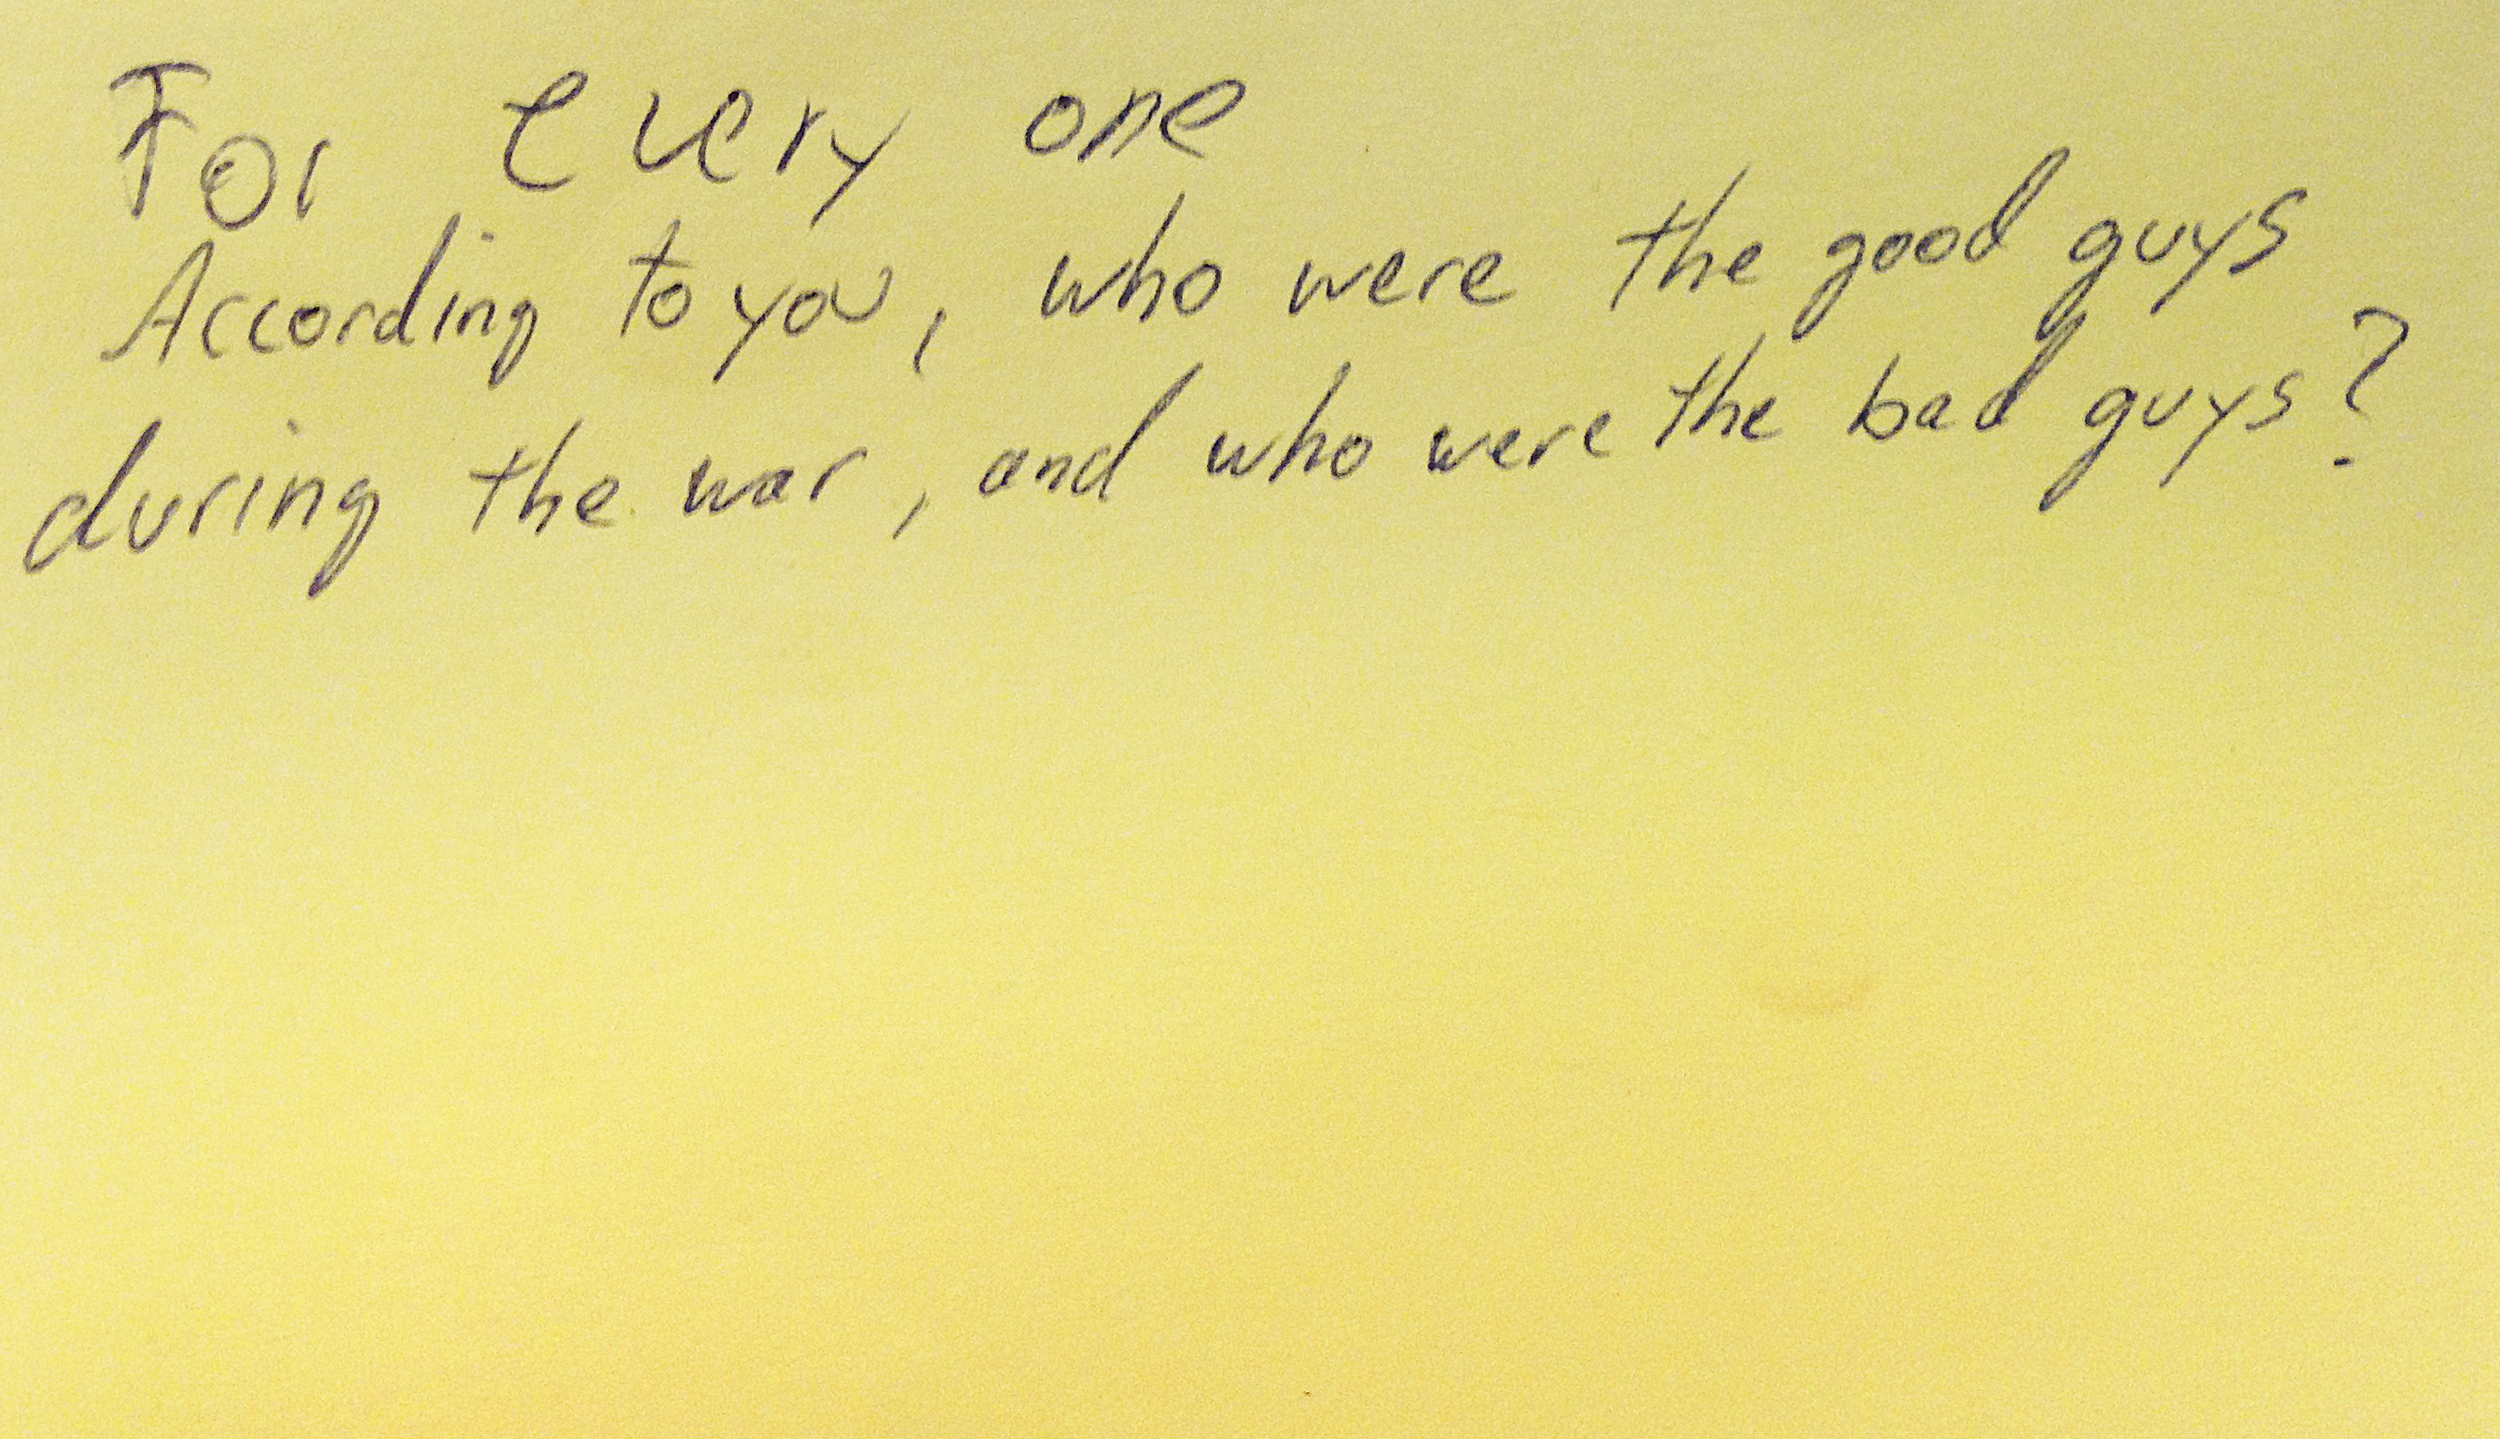 For every one
According to you, who were the good guys
during the war, and who were the bad guys?